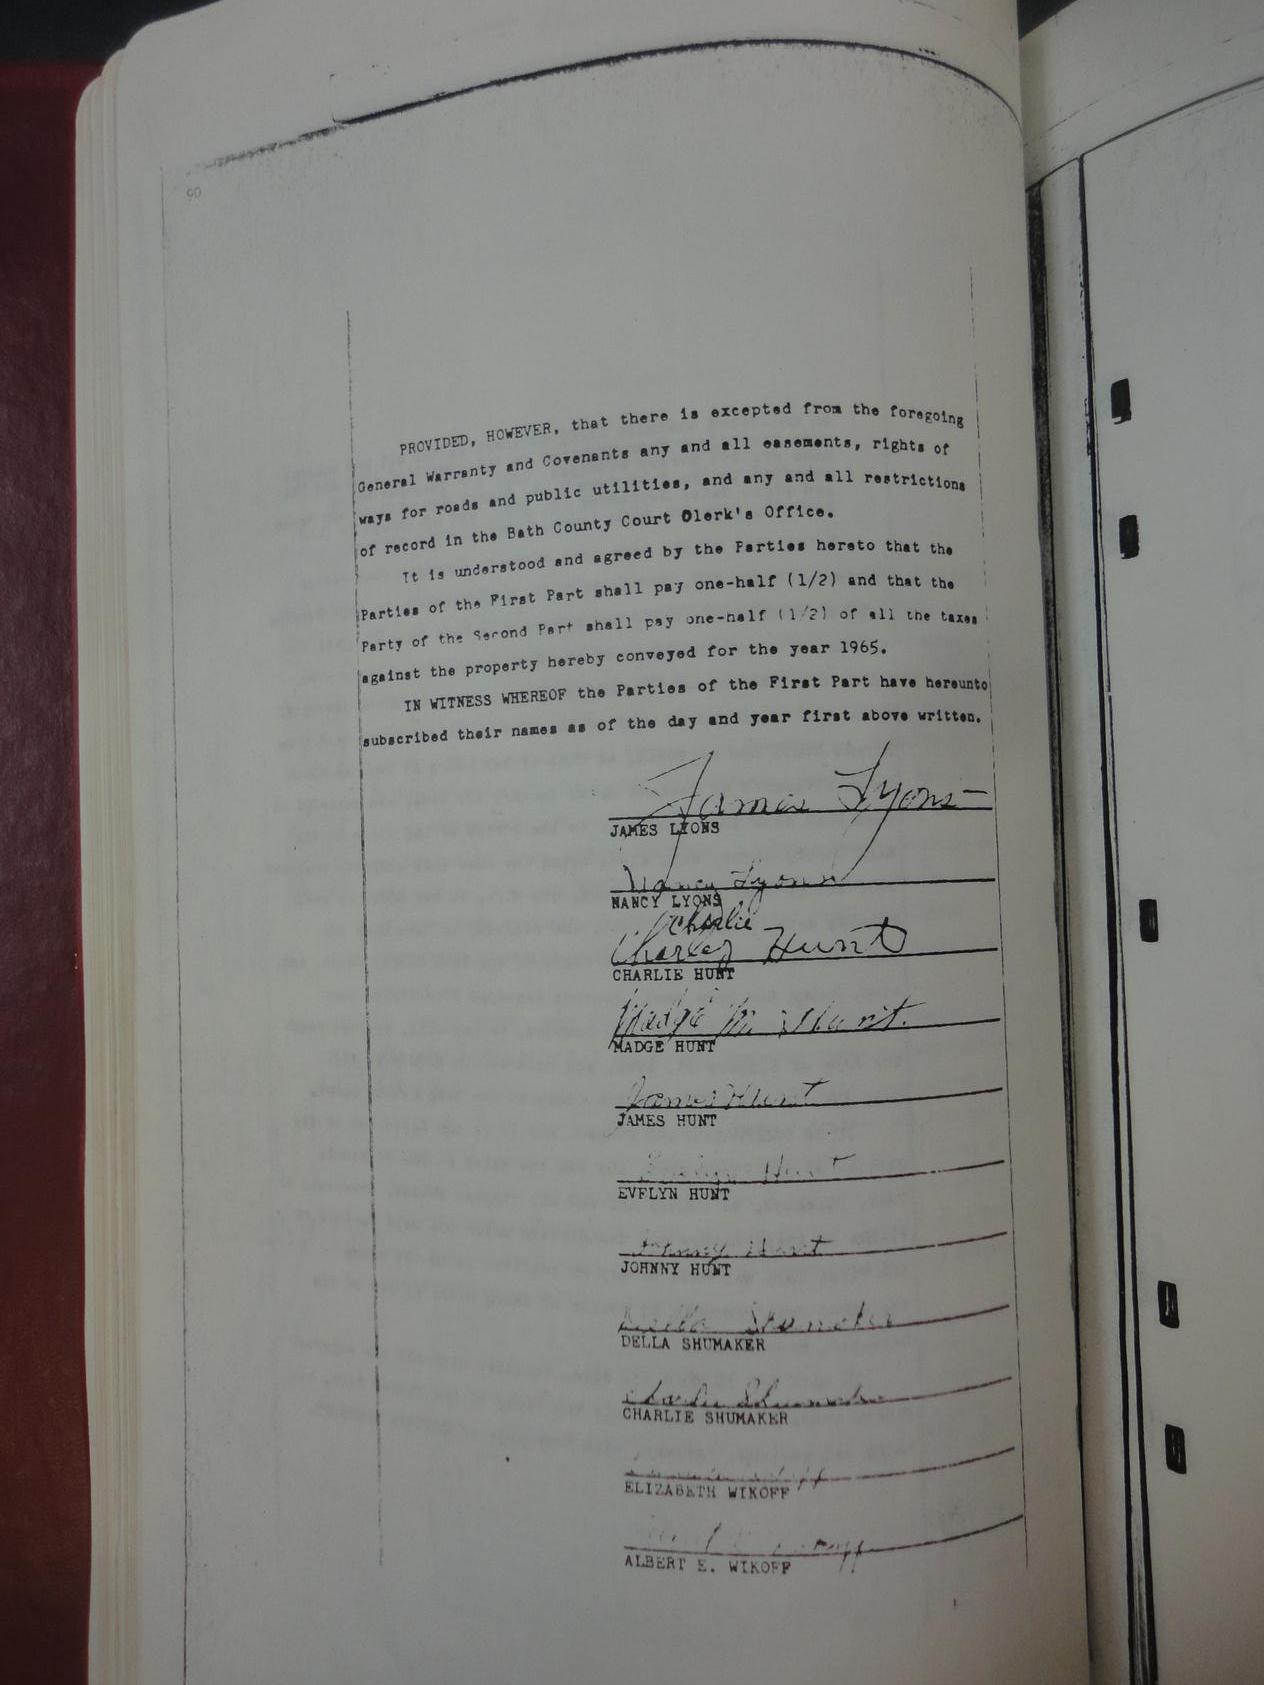 90
PROVIDED, HOWEVER, that there is excepted from the foregoing
General Warranty and Covenants any and all easements, rights of
ways for roads and public utilities, and any and all restrictions
of record in the Bath County Court Clerk's Office.
It is understood and agreed by the Parties hereto that the
Parties of the First Part shall pay one-half (1/2) and that the
Party of the Second Part shall pay one-half (1/2) of all the taxes
against the property hereby conveyed for the year 1965.
IN WITNESS WHEREOF the Parties of the First Part have hereunto
subscribed their names as of the day and year first above written.
James Lyons
JAMES LYONS
Nancy Lyons
NANCY LYONS
Charlie
Charley Hunt
CHARLIE HUNT
Madge M. Hunt.
MADGE HUNT
James Hunt
JAMES HUNT
Evelyn Hunt
EVELYN HUNT
Johnny Hunt
JOHNNY HUNT
Della Shumaker
DELLA SHUMAKER
Charlie Shumaker
CHARLIE SHUMAKER
ELIZABETH WIKOFF
ALBERT E. WIKOFF